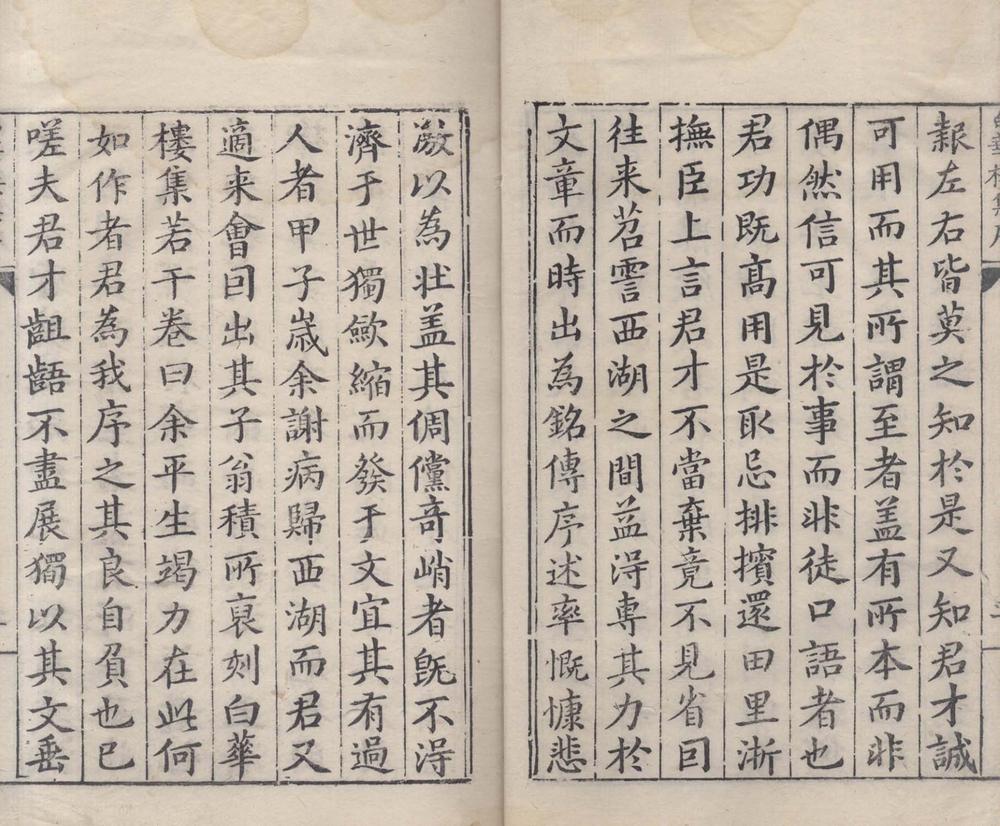 報左右皆莫之知於是又知君才誠
可用而其所謂至者盖有所本而非
偶然信可見於事而非徒口語者也
君功既髙用是取忌排擯還田里浙
撫臣上言君才不當棄竟不見省囙
往来苕霅西湖之間益淂專其力於
文章而時出為銘傳序述率慨慷悲
激以為壯盖其倜儻竒峭者旣不淂
濟于世獨歛縮而發于文宜其有過
人者甲子嵗余謝病歸西湖而君又
適来會囙出其子翁積所裒刻白華
樓集若干卷曰余平生竭力在此何
如作者君為我序之其良自負也已
嗟夫君才齟齬不盡展獨以其文垂